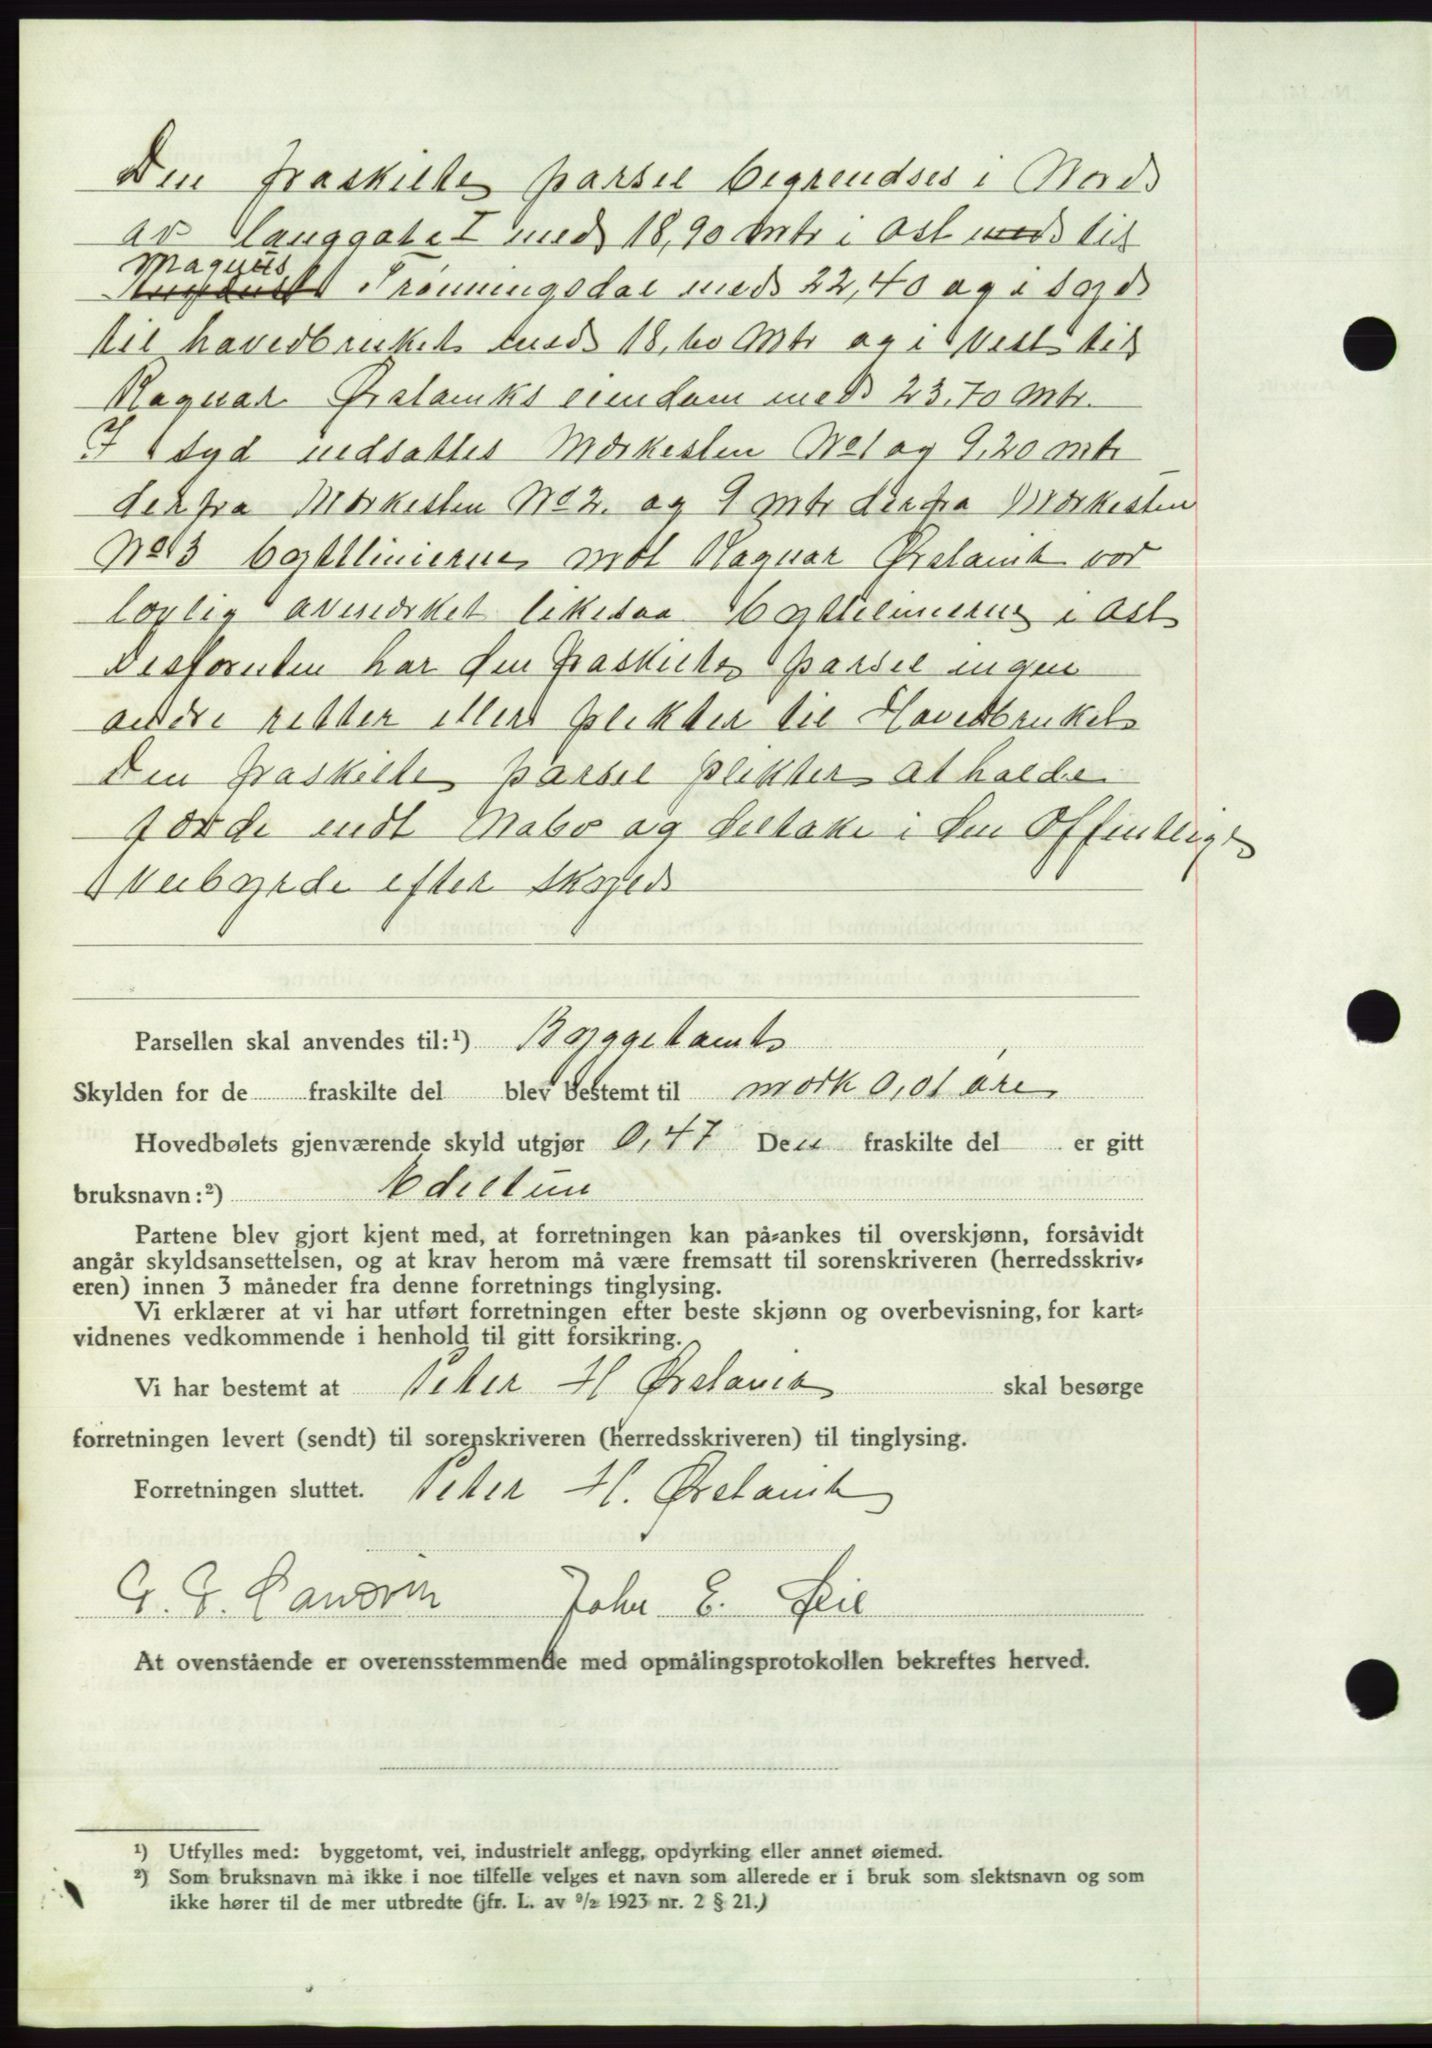 Den fraskilte parsel begrendses i Nord
av langgate I med 18,90 mtr i Ost med til
Magnus Trønningsdal med 22,40 og i søyd
til havedbruket med 18,60 Mtr og i Vest til
Ragnar Ørstaviks eiendom med 23,70 Mtr.
I syd nedsattes Mærkesten No 1 og 9,20 mtr
derfra Mærkesten No 2. og 9 mtr derfra Mærkesten
No 3 byttlinierne mot Ragnar Ørstavik var
lovlig avmærket likesaa byttelinierne i Ost
Desforuten har den fraskilte parsel ingen
andre retter eller plikter til Havedbruket
Den fraskilte parsel plikter at halde
gærde mot Nabo og deltake i den Offentlige
Veibyrde efter skyld
Parsellen skal anvendes til:¹) Byggetomt
Skylden for de fraskilte del blev bestemt til mark 0,01 øre
Hovedbølets gjenværende skyld utgjør 0,47 Den fraskilte del er gitt
bruksnavn:²)
Partene blev gjort kjent med, at forretningen kan på-ankes til overskjønn, forsåvidt
angår skyldsansettelsen, og at krav herom må være fremsatt til sorenskriveren (herredsskriv-
eren) innen 3 måneder fra denne forretnings tinglysing.
Vi erklærer at vi har utført forretningen efter beste skjønn og overbevisning, for kart-
vidnenes vedkommende i henhold til gitt forsikring.
Vi har bestemt at Peter H Ørstavik skal besørge
forretningen levert (sendt) til sorenskriveren (herredsskriveren) til tinglysing.
Forretningen sluttet. Peter H. Ørstavik
G. G. John E. Leil
At ovenstående er overensstemmende med opmålingsprotokollen bekreftes herved.
¹) Utfylles med: byggetomt, vei, industrielt anlegg, opdyrking eller annet øiemed.
²) Som bruksnavn må ikke i noe tilfelle velges et navn som allerede er i bruk som slektsnavn og som
ikke hører til de mer utbredte (jfr. L. av ⁹/₂ 1923 nr. 2 § 21.)